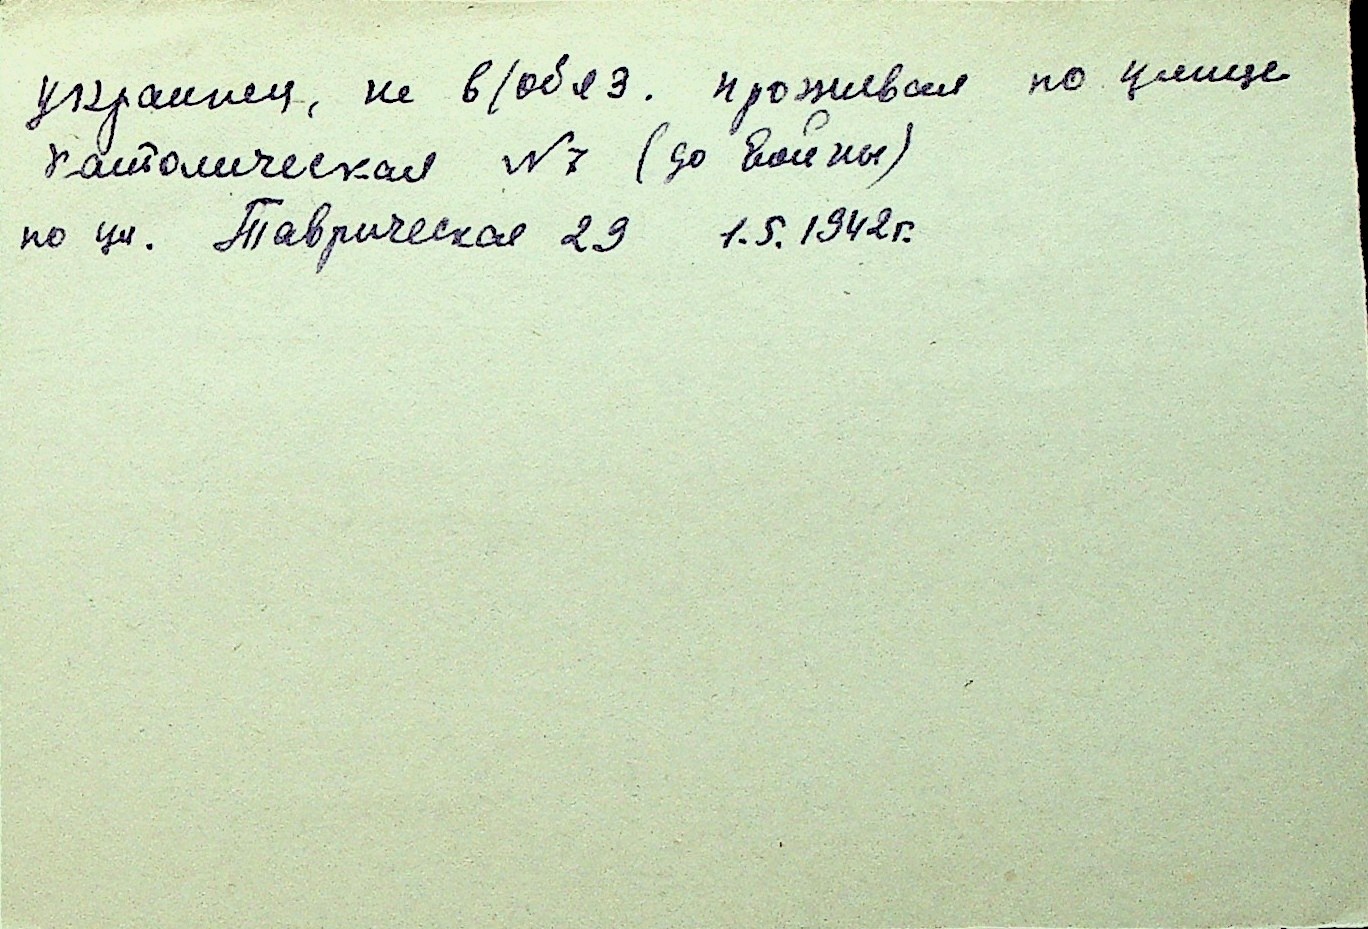 украинец, не в/обяз. проживал по улице
Католическая №7 (до войны)
по ул. Таврическая 29 1.5.1942г.